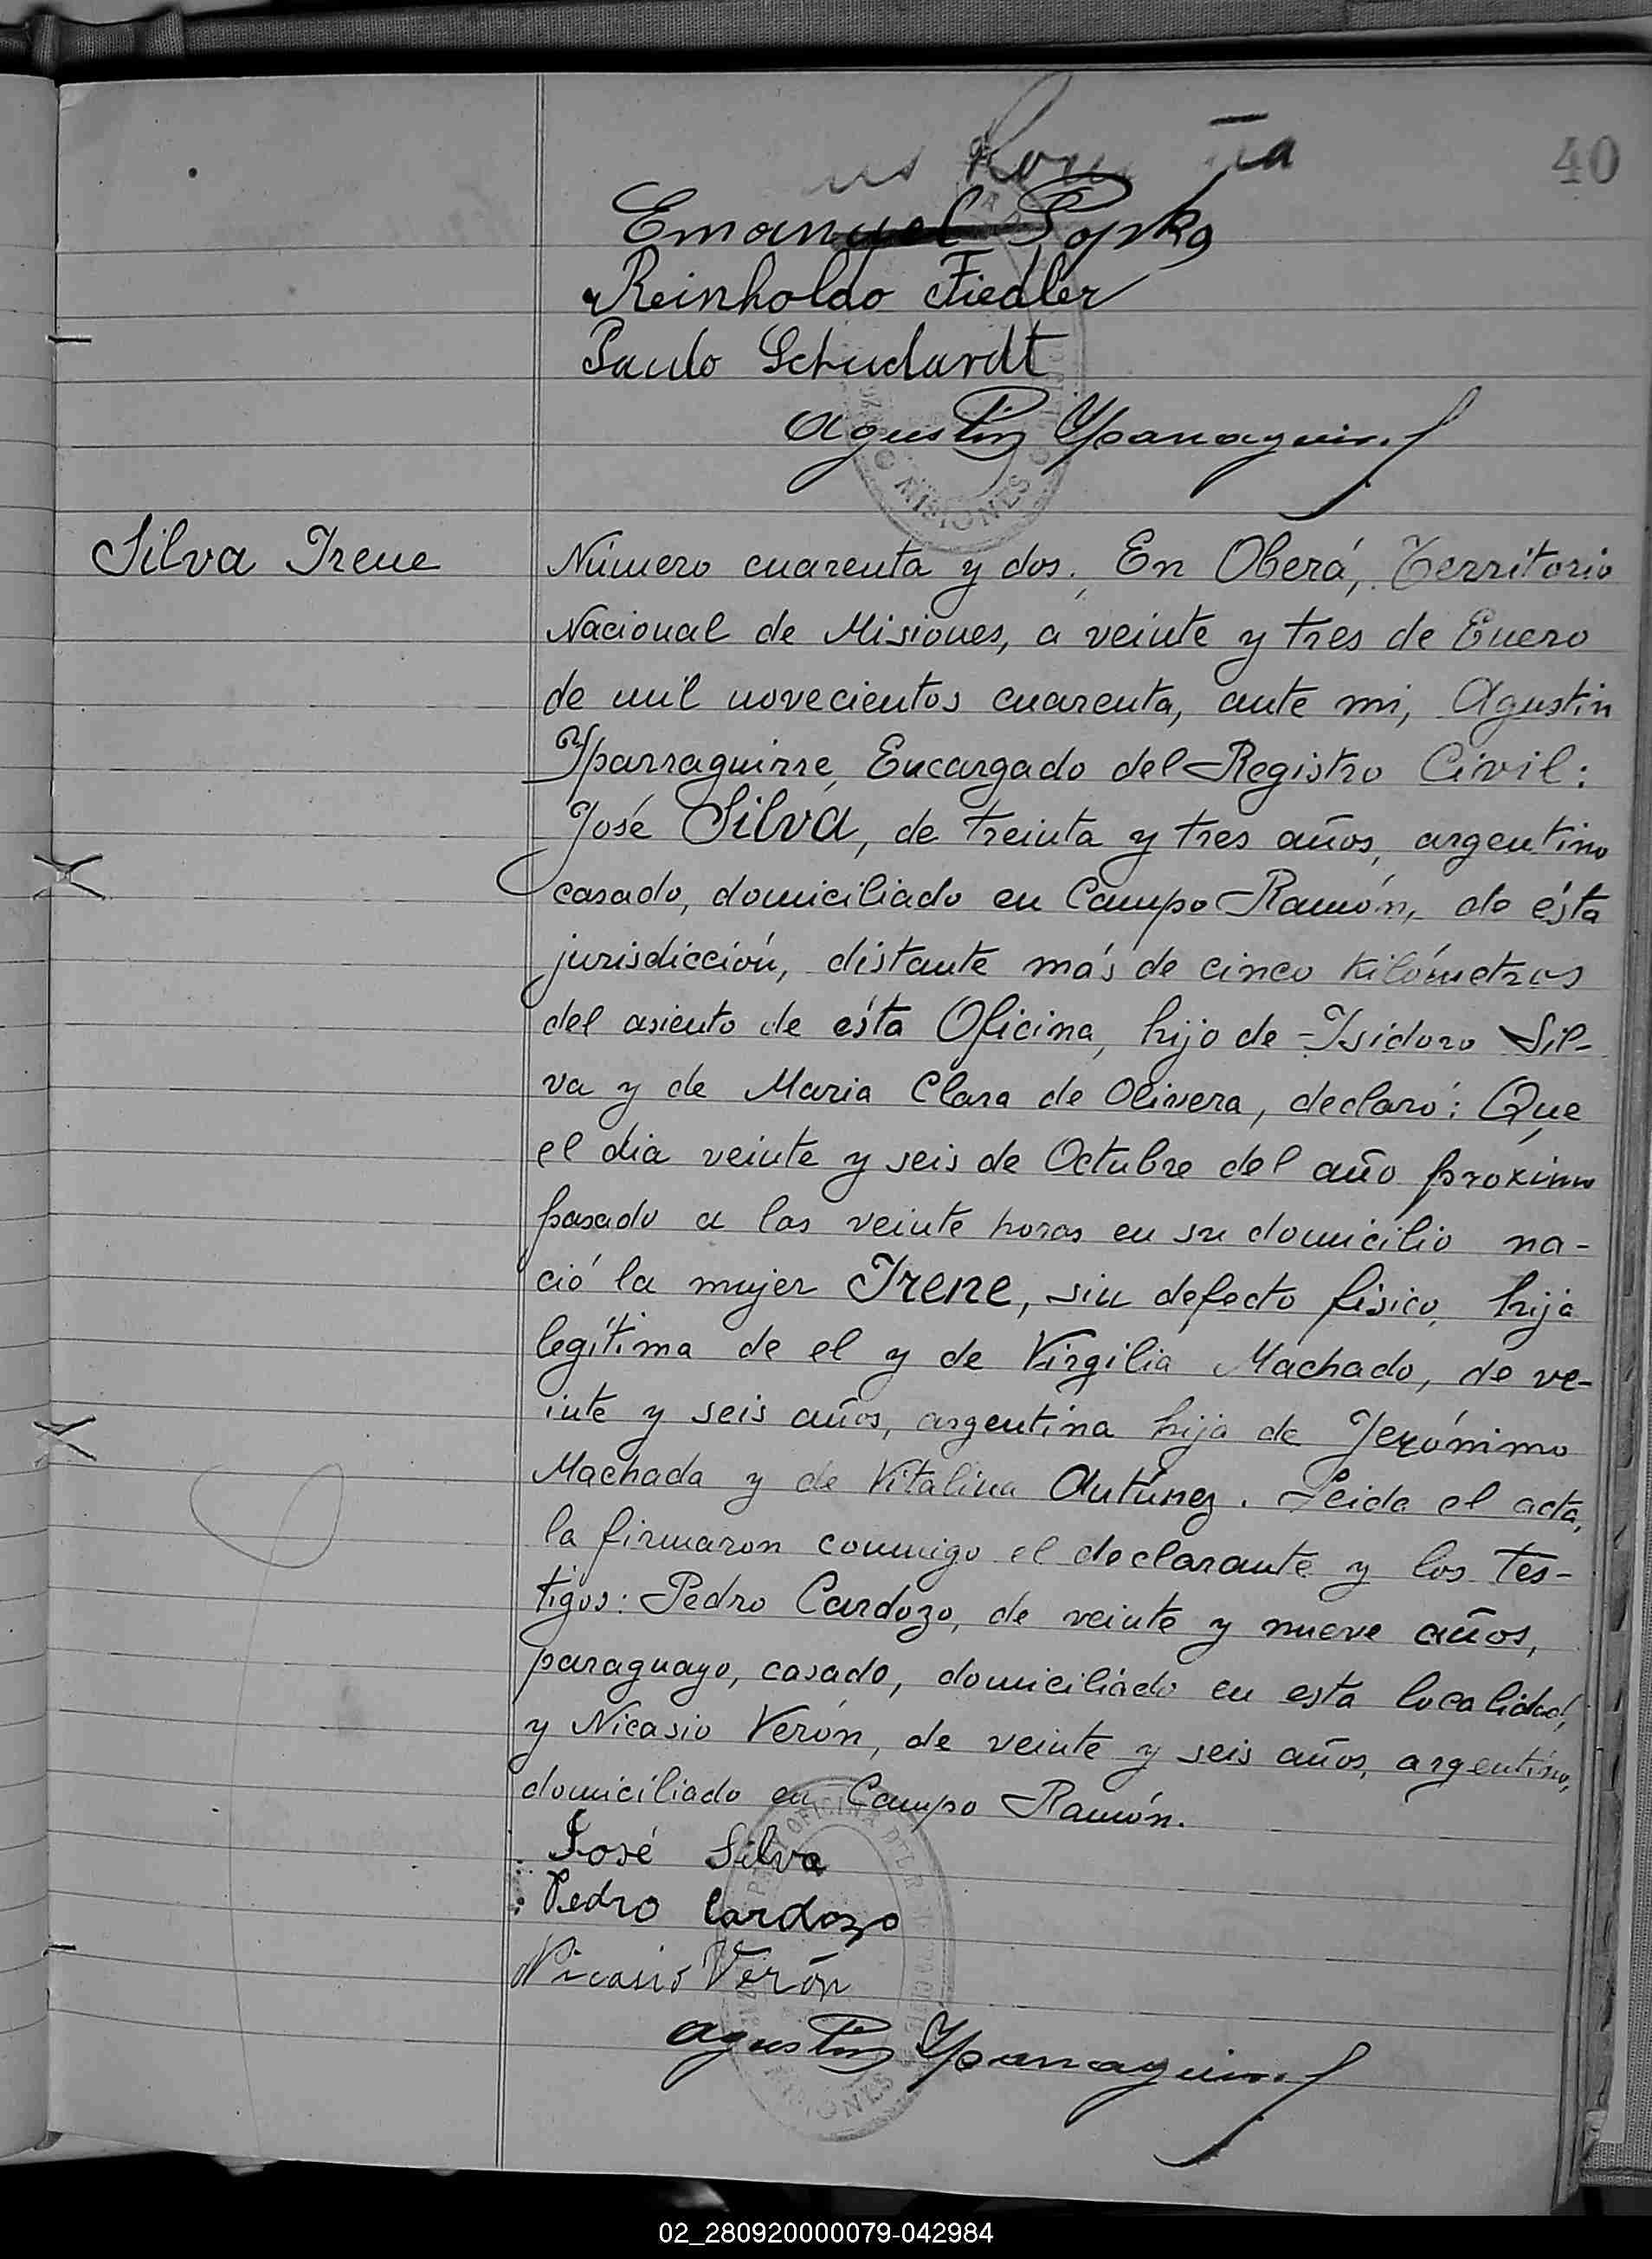 40
Emanuel Popka
Reinholdo Fiedler
Paulo Schudardt
Agustin Yparraguirre
MISIONES
Silva Irene
Número cuarenta y dos. En Oberá, Territorio
Nacional de Misiones, a veinte y tres de Enero
de mil novecientos cuarenta, ante mi, Agustin
Yparraguirre, Encargado del Registro Civil:
José Silva, de treinta y tres años, argentino
casado, domiciliado en Campo Ramón, de ésta
jurisdicción, distante más de cinco kilómetros
del asiento de ésta Oficina, hijo de Isidoro Sil-
va y de Maria Clara de Olivera, declaró: Que
el dia veinte y seis de Octubre del año proximo
pasado a las veinte horas en su domicilio na-
ció la mujer Irene, sin defecto fisico, hija
legítima de el y de Virgilia Machado, de ve-
inte y seis años, argentina hija de Jerónimo
Machada y de Vitalina Antúnez. Leida el acta,
la firmaron conmigo el declarante y los tes-
tigos: Pedro Cardozo, de veinte y nueve años,
paraguayo, casado, domiciliado en esta localidad,
y Nicasio Verón, de veinte y seis años, argentino,
domiciliado en Campo Ramón.
José Silva
Pedro Cardozo
Nicasio Verón
Agustin Yparraguirre
MISIONES
02_280920000079-042984